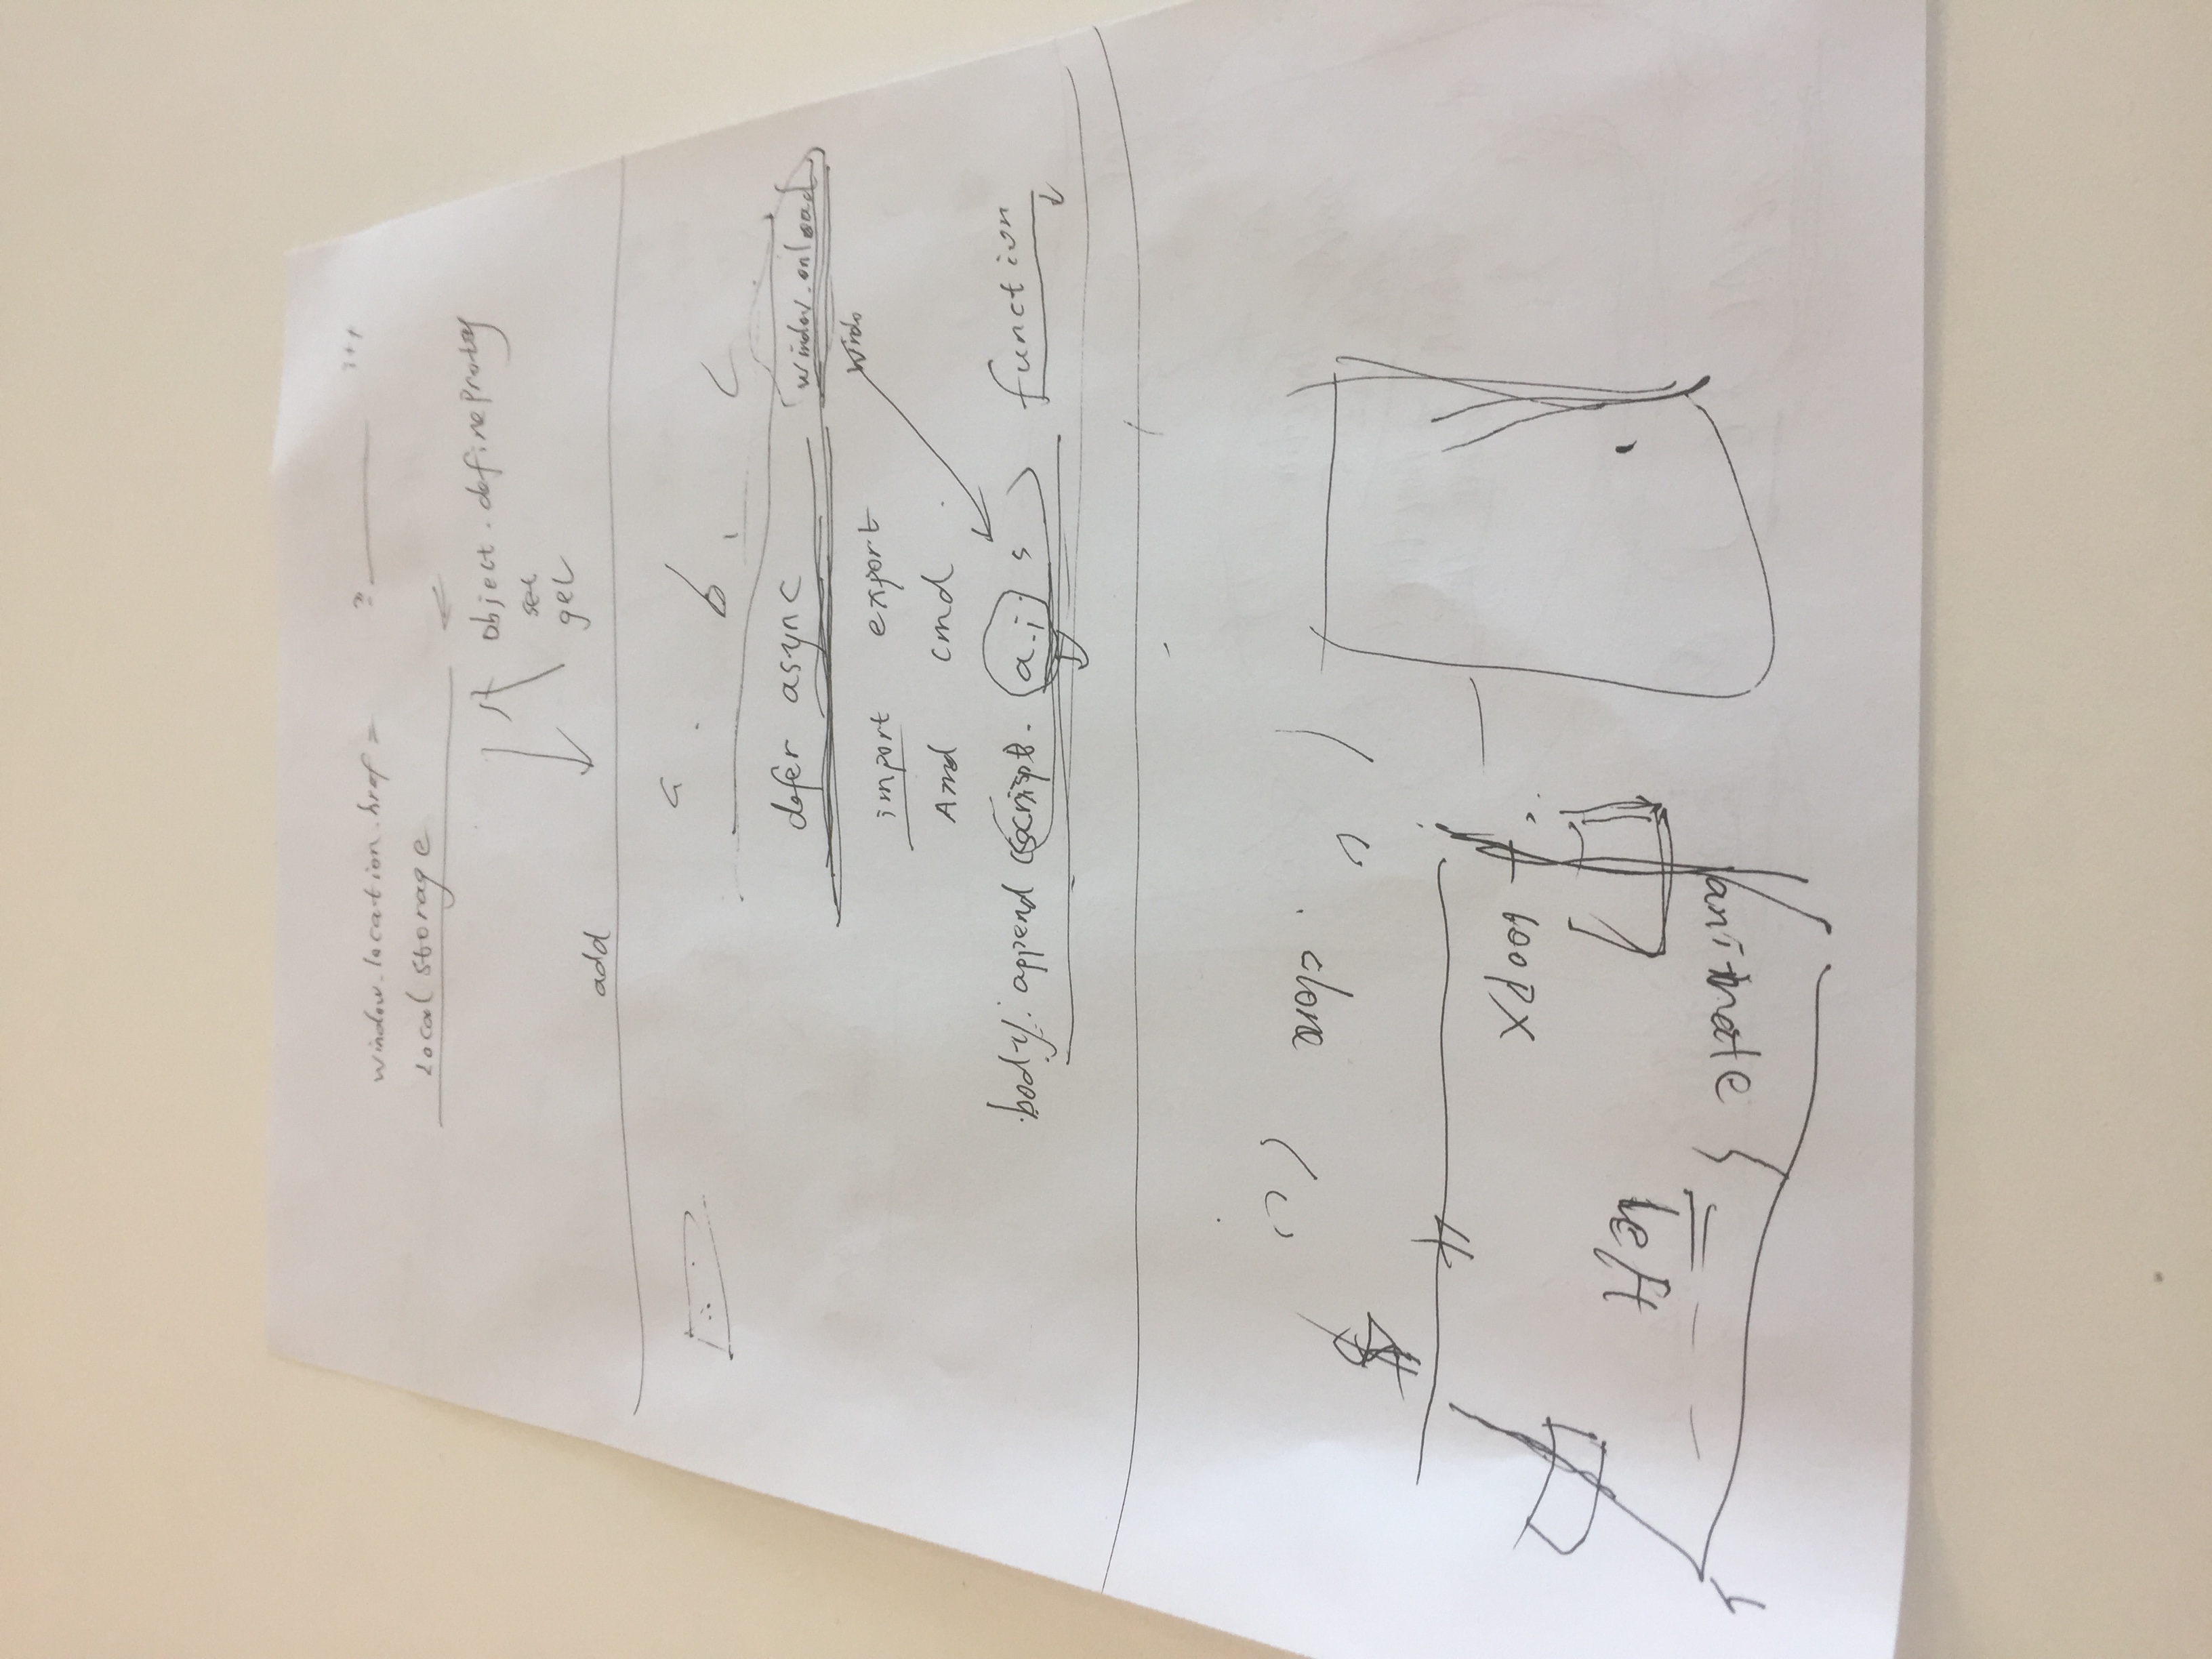 window.location.href = ? i++
Local storage
object.defineProtey
set
get
add
a b c
defer async window.onload
windo
import export
Amd cmd
body.append (script. a.j s ) function
.clone ( )
$
600px
left
animate